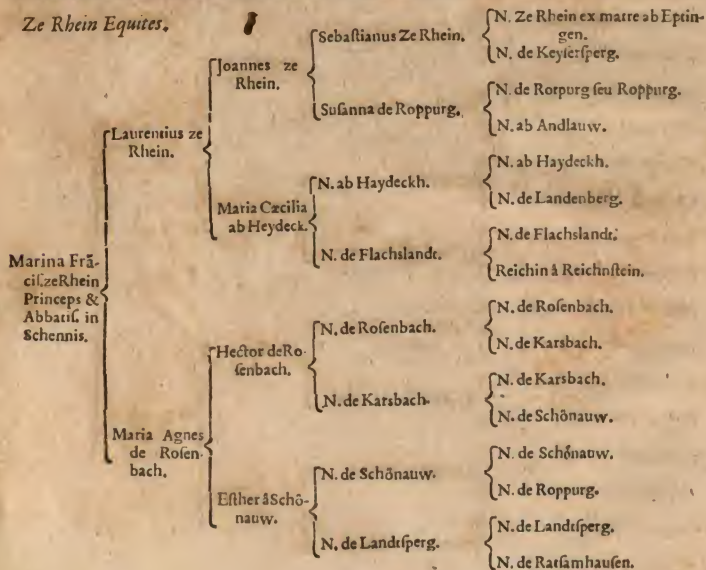 Ze Rhein Equites.
Marina Frā-
ciſ. ze Rhein
Princeps &
Abbatiſ. in
Schennis.
Laurentius ze
Rhein.
Maria Agnes
de Roſen-
bach.
Joannes ze
Rhein.
Maria Cæcilia
ab Heydeck.
Hector de Ro-
ſenbach.
Eſther â Schö-
nauw.
Sebaſtianus Ze Rhein.
Suſanna de Roppurg.
N. ab Haydeckh.
N. de Flachslandt.
N. de Roſenbach.
N. de Karsbach.
N. de Schönauw.
N. de Landtſperg.
N. Ze Rhein ex matre ab Eptin-
gen.
N. de Keyſerſperg.
N. de Rotpurg ſeu Roppurg.
N. ab Andlauw.
N. ab Haydeckh.
N. de Landenberg.
N. de Flachslandt.
Reichin â Reichnſtein.
N. de Roſenbach.
N. de Karsbach.
N. de Karsbach.
N. de Schönauw.
N. de Schönauw.
N. de Roppurg.
N. de Landtſperg.
N. de Ratſamhauſen.